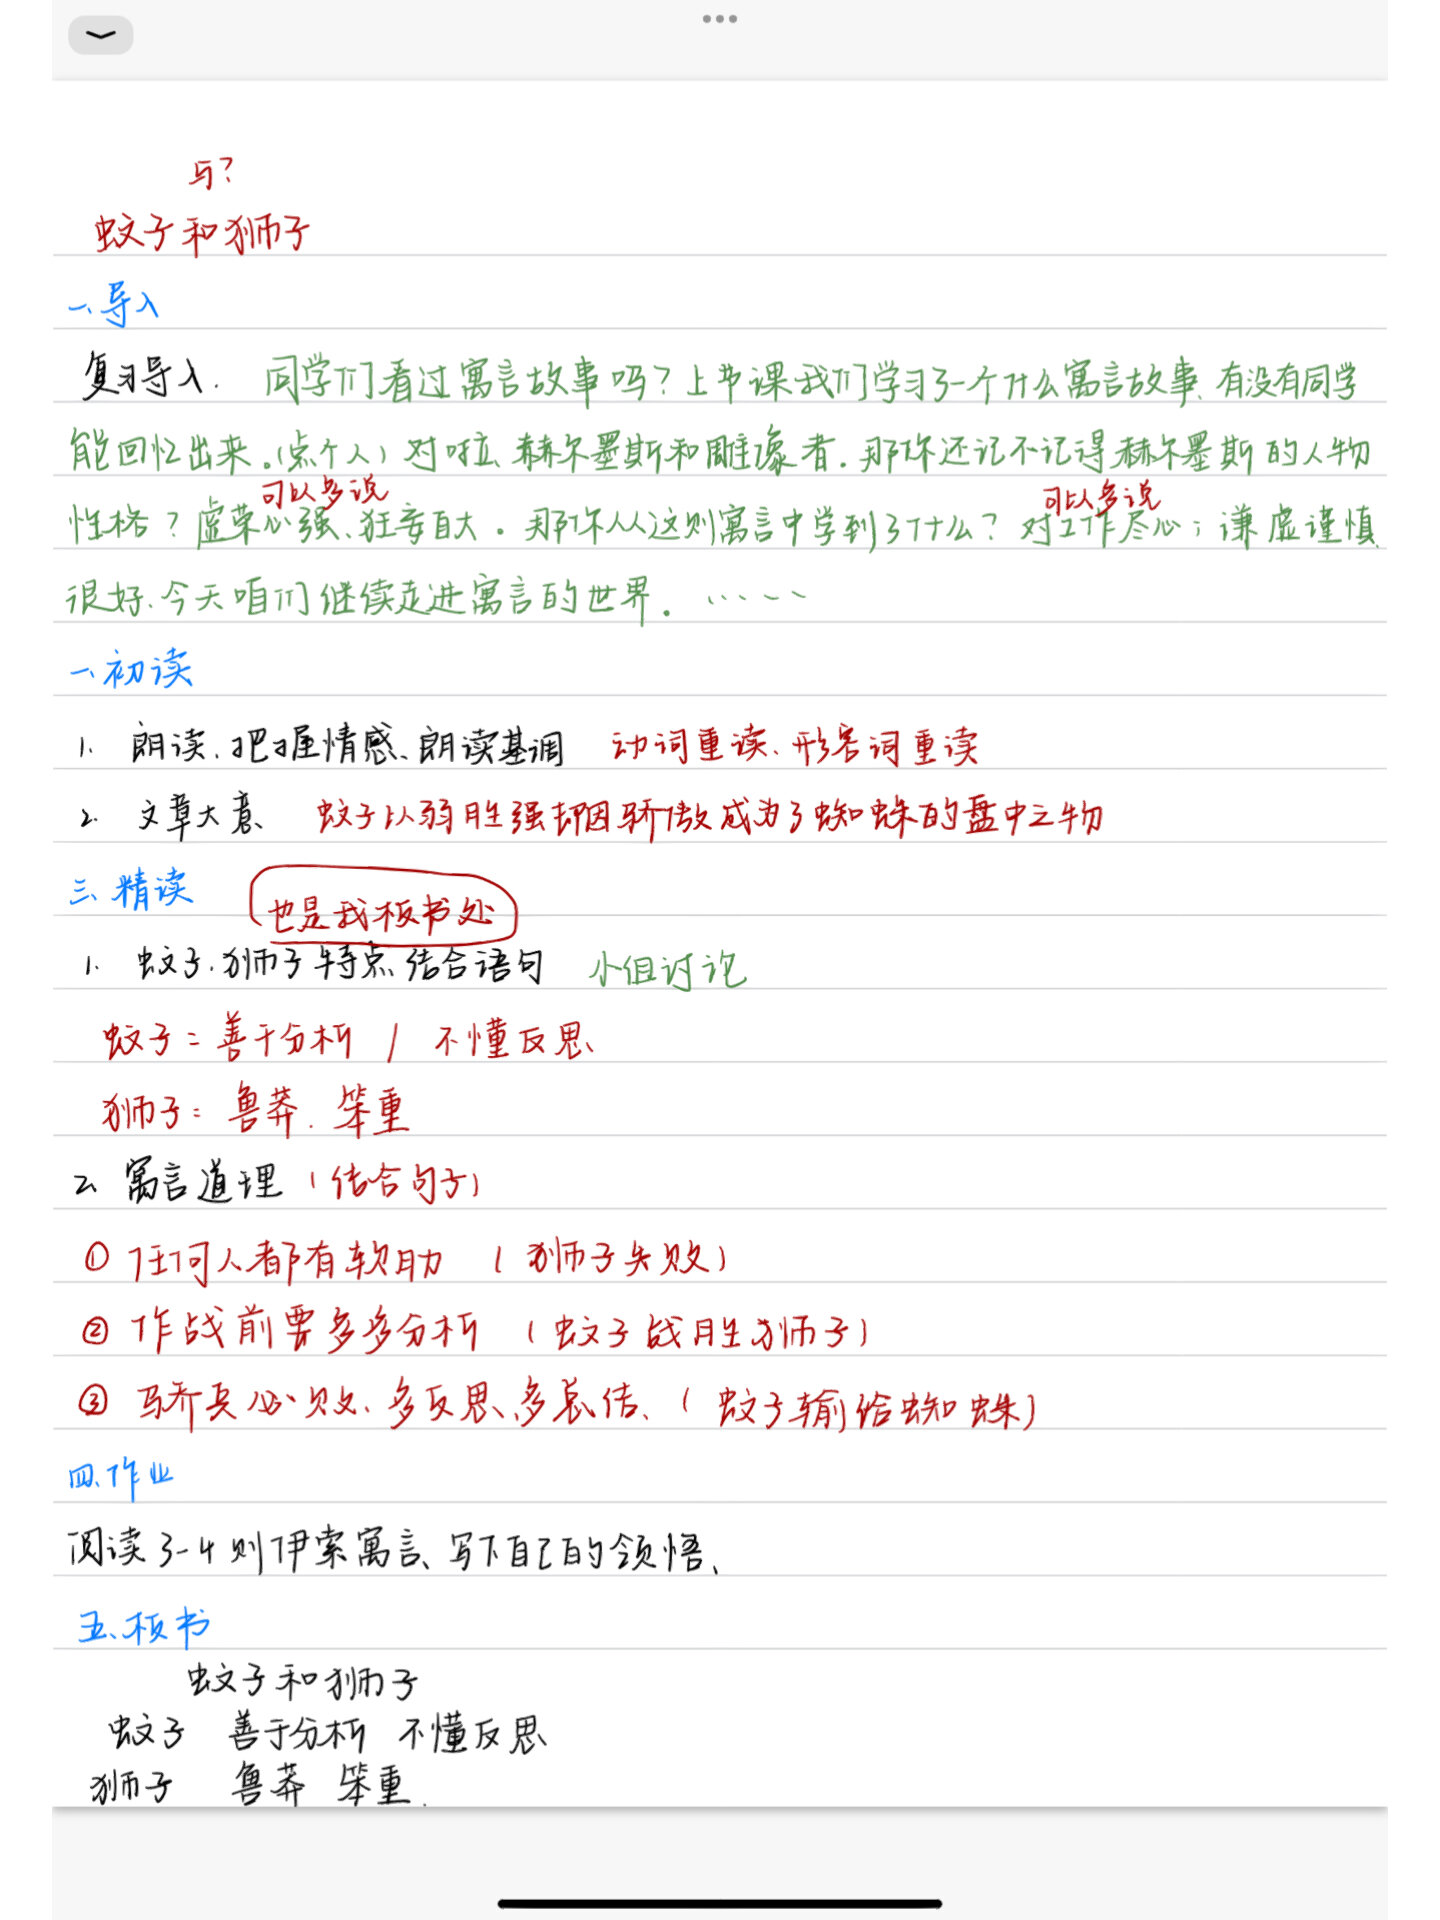 与?
蚊子和狮子
一、导入
复习导入. 同学们看过寓言故事吗？上节课我们学习了一个什么寓言故事、有没有同学
能回忆出来。(点个人) 对啦、赫尔墨斯和雕像者. 那你还记不记得赫尔墨斯的人物
可以多说 可以多说
性格？虚荣心强、狂妄自大。那你从这则寓言中学到了什么？对工作尽心；谦虚谨慎.
很好、今天咱们继续走进寓言的世界. ......
一、初读
1. 朗读、把握情感、朗读基调 动词重读、形容词重读
2. 文章大意、 蚊子以弱胜强却因骄傲成为了蜘蛛的盘中之物
三、精读 也是我板书处
1. 蚊子.狮子特点、结合语句 小组讨论
蚊子: 善于分析 / 不懂反思、
狮子: 鲁莽. 笨重
2、寓言道理 (结合句子)
① 任何人都有软肋 (狮子失败)
② 作战前要多多分析 (蚊子战胜狮子)
③ 骄兵必败、多反思、多总结、(蚊子输给蜘蛛)
四、作业
阅读3-4则伊索寓言、写下自己的领悟、
五、板书
蚊子和狮子
蚊子 善于分析 不懂反思
狮子 鲁莽 笨重.